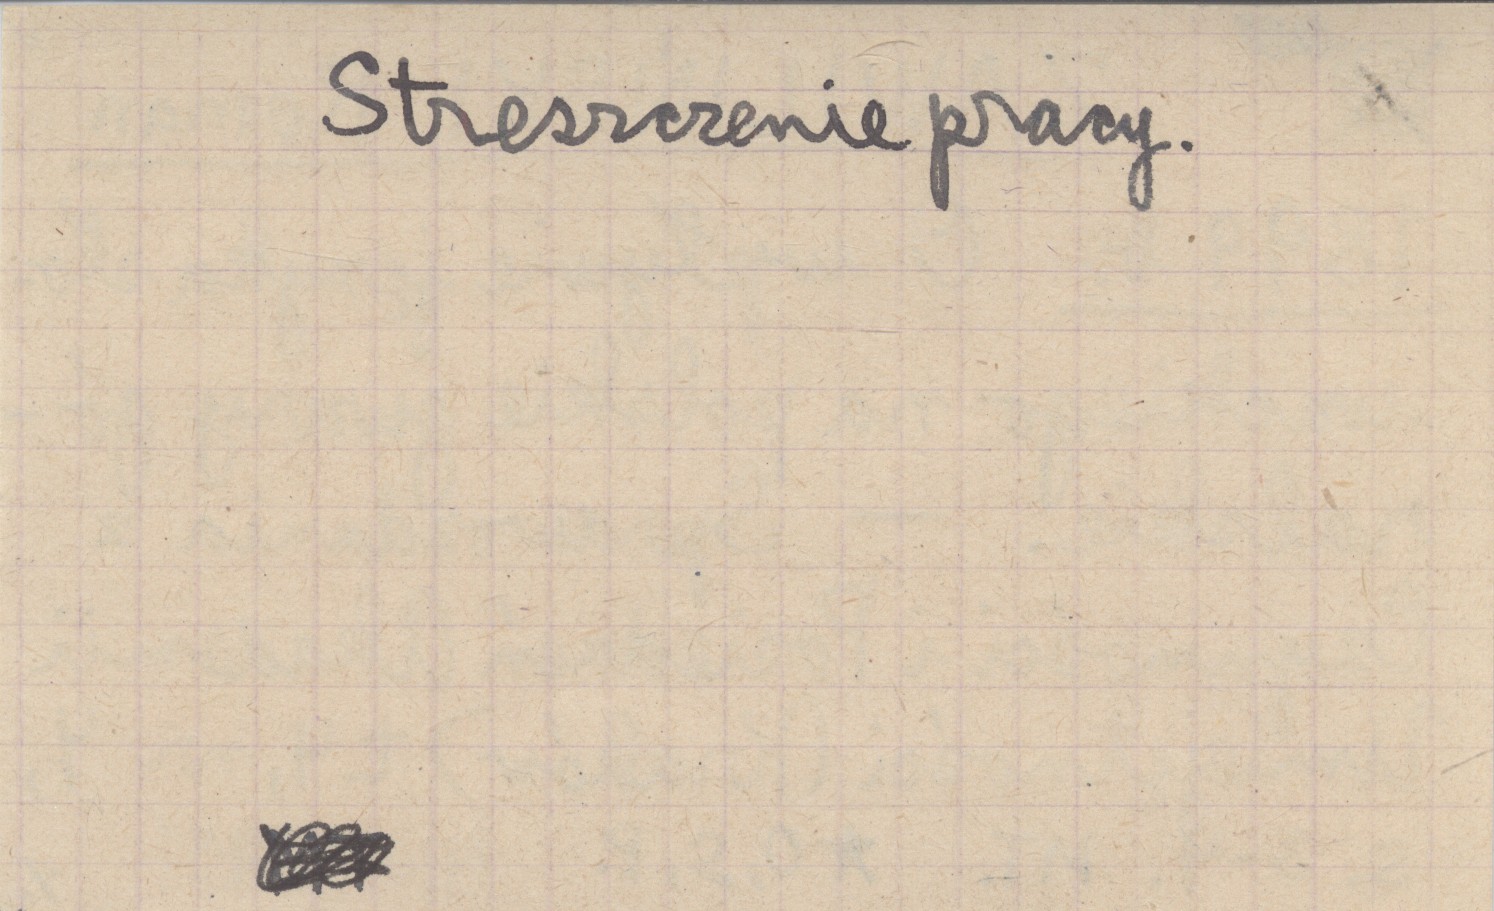 Streszczenie pracy.